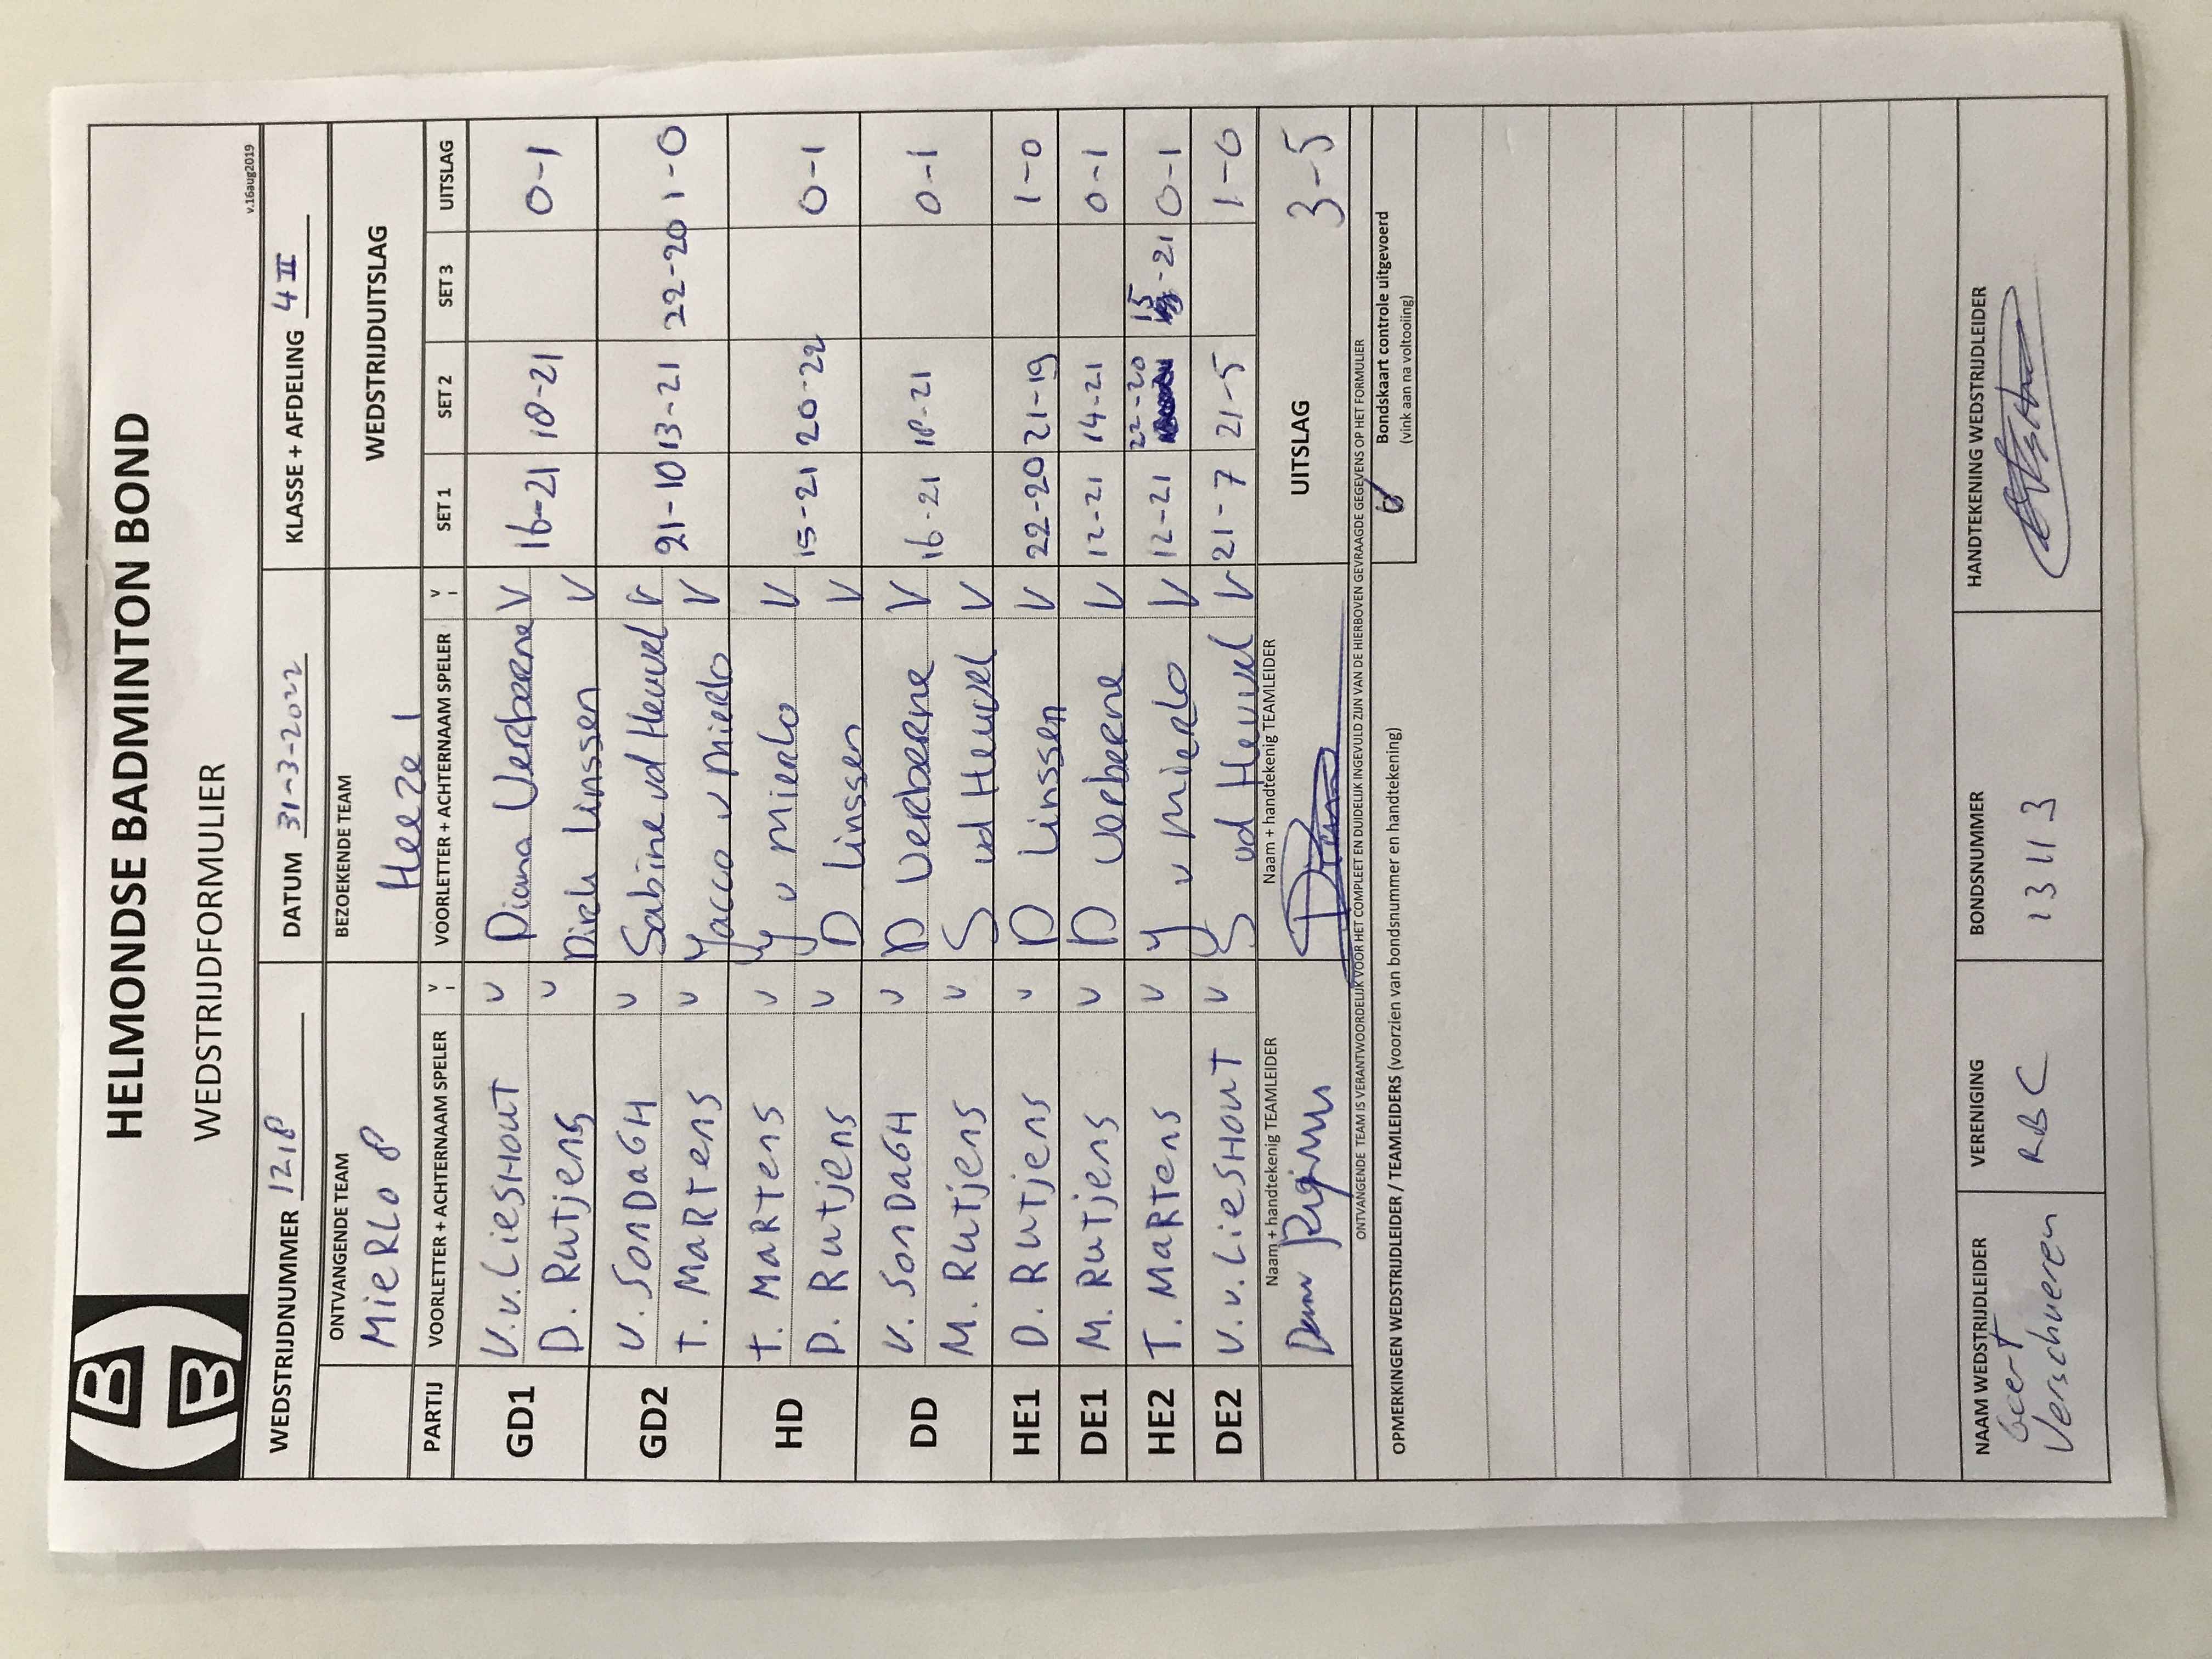 HELMONDSE BADMINTON BOND
WEDSTRIJDFORMULIER
v.16aug2019
WEDSTRIJDNUMMER 1218 DATUM 31-3-2022 KLASSE + AFDELING 4 II
ONTVANGENDE TEAM BEZOEKENDE TEAM WEDSTRIJDUITSLAG
MieRLo 8 Heeze 1
PARTIJ VOORLETTER + ACHTERNAAM SPELER V VOORLETTER + ACHTERNAAM SPELER V SET 1 SET 2 SET 3 UITSLAG
GD1 V.v. LiesHouT v Diana Verberne V 16-21 18-21 0-1
D. Rutjens v Dirk Linssen V
GD2 V. SonDaGH v Sabine vd Heuvel V 21-10 13-21 22-20 1-0
T. MaRTens v Yacco v Mierlo V
HD T. MaRTens v Y v Mierlo V 15-21 20-22 0-1
D. Rutjens v D Linssen V
DD V. SonDaGH v D Verberne V 16-21 18-21 0-1
M. Rutjens v S vd Heuvel V
HE1 D. Rutjens v D Linssen V 22-20 21-19 1-0
DE1 M. Rutjens v D Verberne V 12-21 14-21 0-1
HE2 T. MaRTens v Y v Mierlo V 12-21 22-20 15-21 0-1
DE2 V.v. LiesHouT v S vd Heuvel V 21-7 21-5 1-0
Naam + handtekenig TEAMLEIDER Naam + handtekenig TEAMLEIDER UITSLAG 3-5
ONTVANGENDE TEAM IS VERANTWOORDELIJK VOOR HET COMPLEET EN DUIDELIJK INGEVULD ZIJN VAN DE HIERBOVEN GEVRAAGDE GEGEVENS OP HET FORMULIER
OPMERKINGEN WEDSTRIJDLEIDER / TEAMLEIDERS (voorzien van bondsnummer en handtekening) Bondskaart controle uitgevoerd
(vink aan na voltooling)
NAAM WEDSTRIJDLEIDER VERENIGING BONDSNUMMER HANDTEKENING WEDSTRIJDLEIDER
Geert
Verschueren RBC 13113